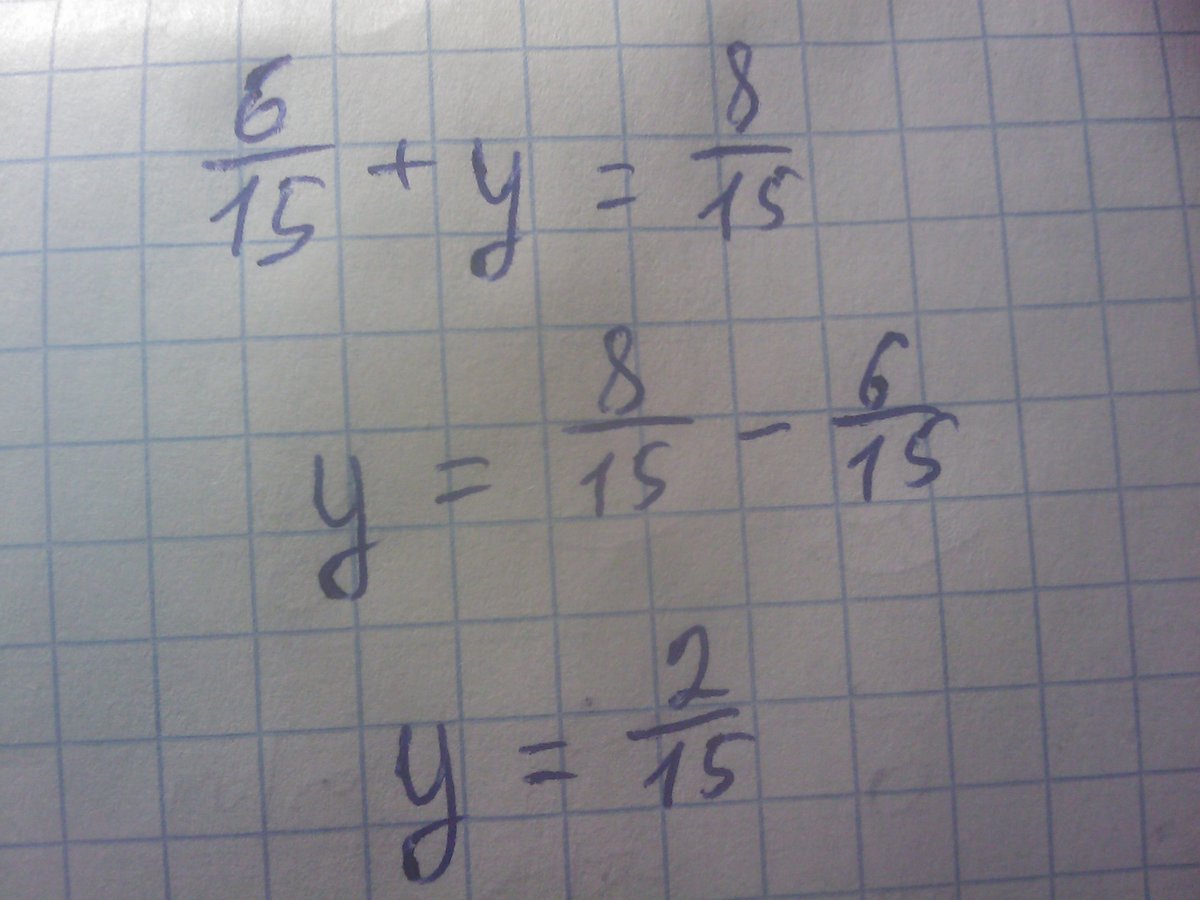 6/15 + y = 8/15
y = 8/15 - 6/15
y = 2/15